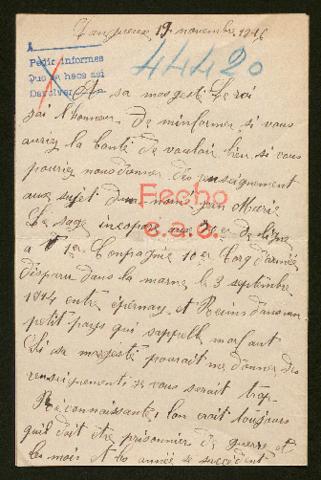 19 novembre 1916
44420
Pedir informes
Que se haga asi
Devolver
A sa magesté Le roi
jai l'honneur De m'informer si vous
auriez la bonté de vouloir bien si vous
pourriez nous donner des renseignement
aux sujet d'un nomé jean Marie
Fecho
Le sage incorporé aux 2e de ligne
e.a.c.
à 1er Compagnie 10er Corp d'armée
disparu dans la marne le 3 septembre
1914 entre épernay et Reims dans un
petit pays qui sappelle morfant
Si sa magesté pourait me donner des
renseignements je vous serait trop
Réconnaissante, lon croit toujours
quil doit être prisonnier de guerre et
les mois et les année se succèdent